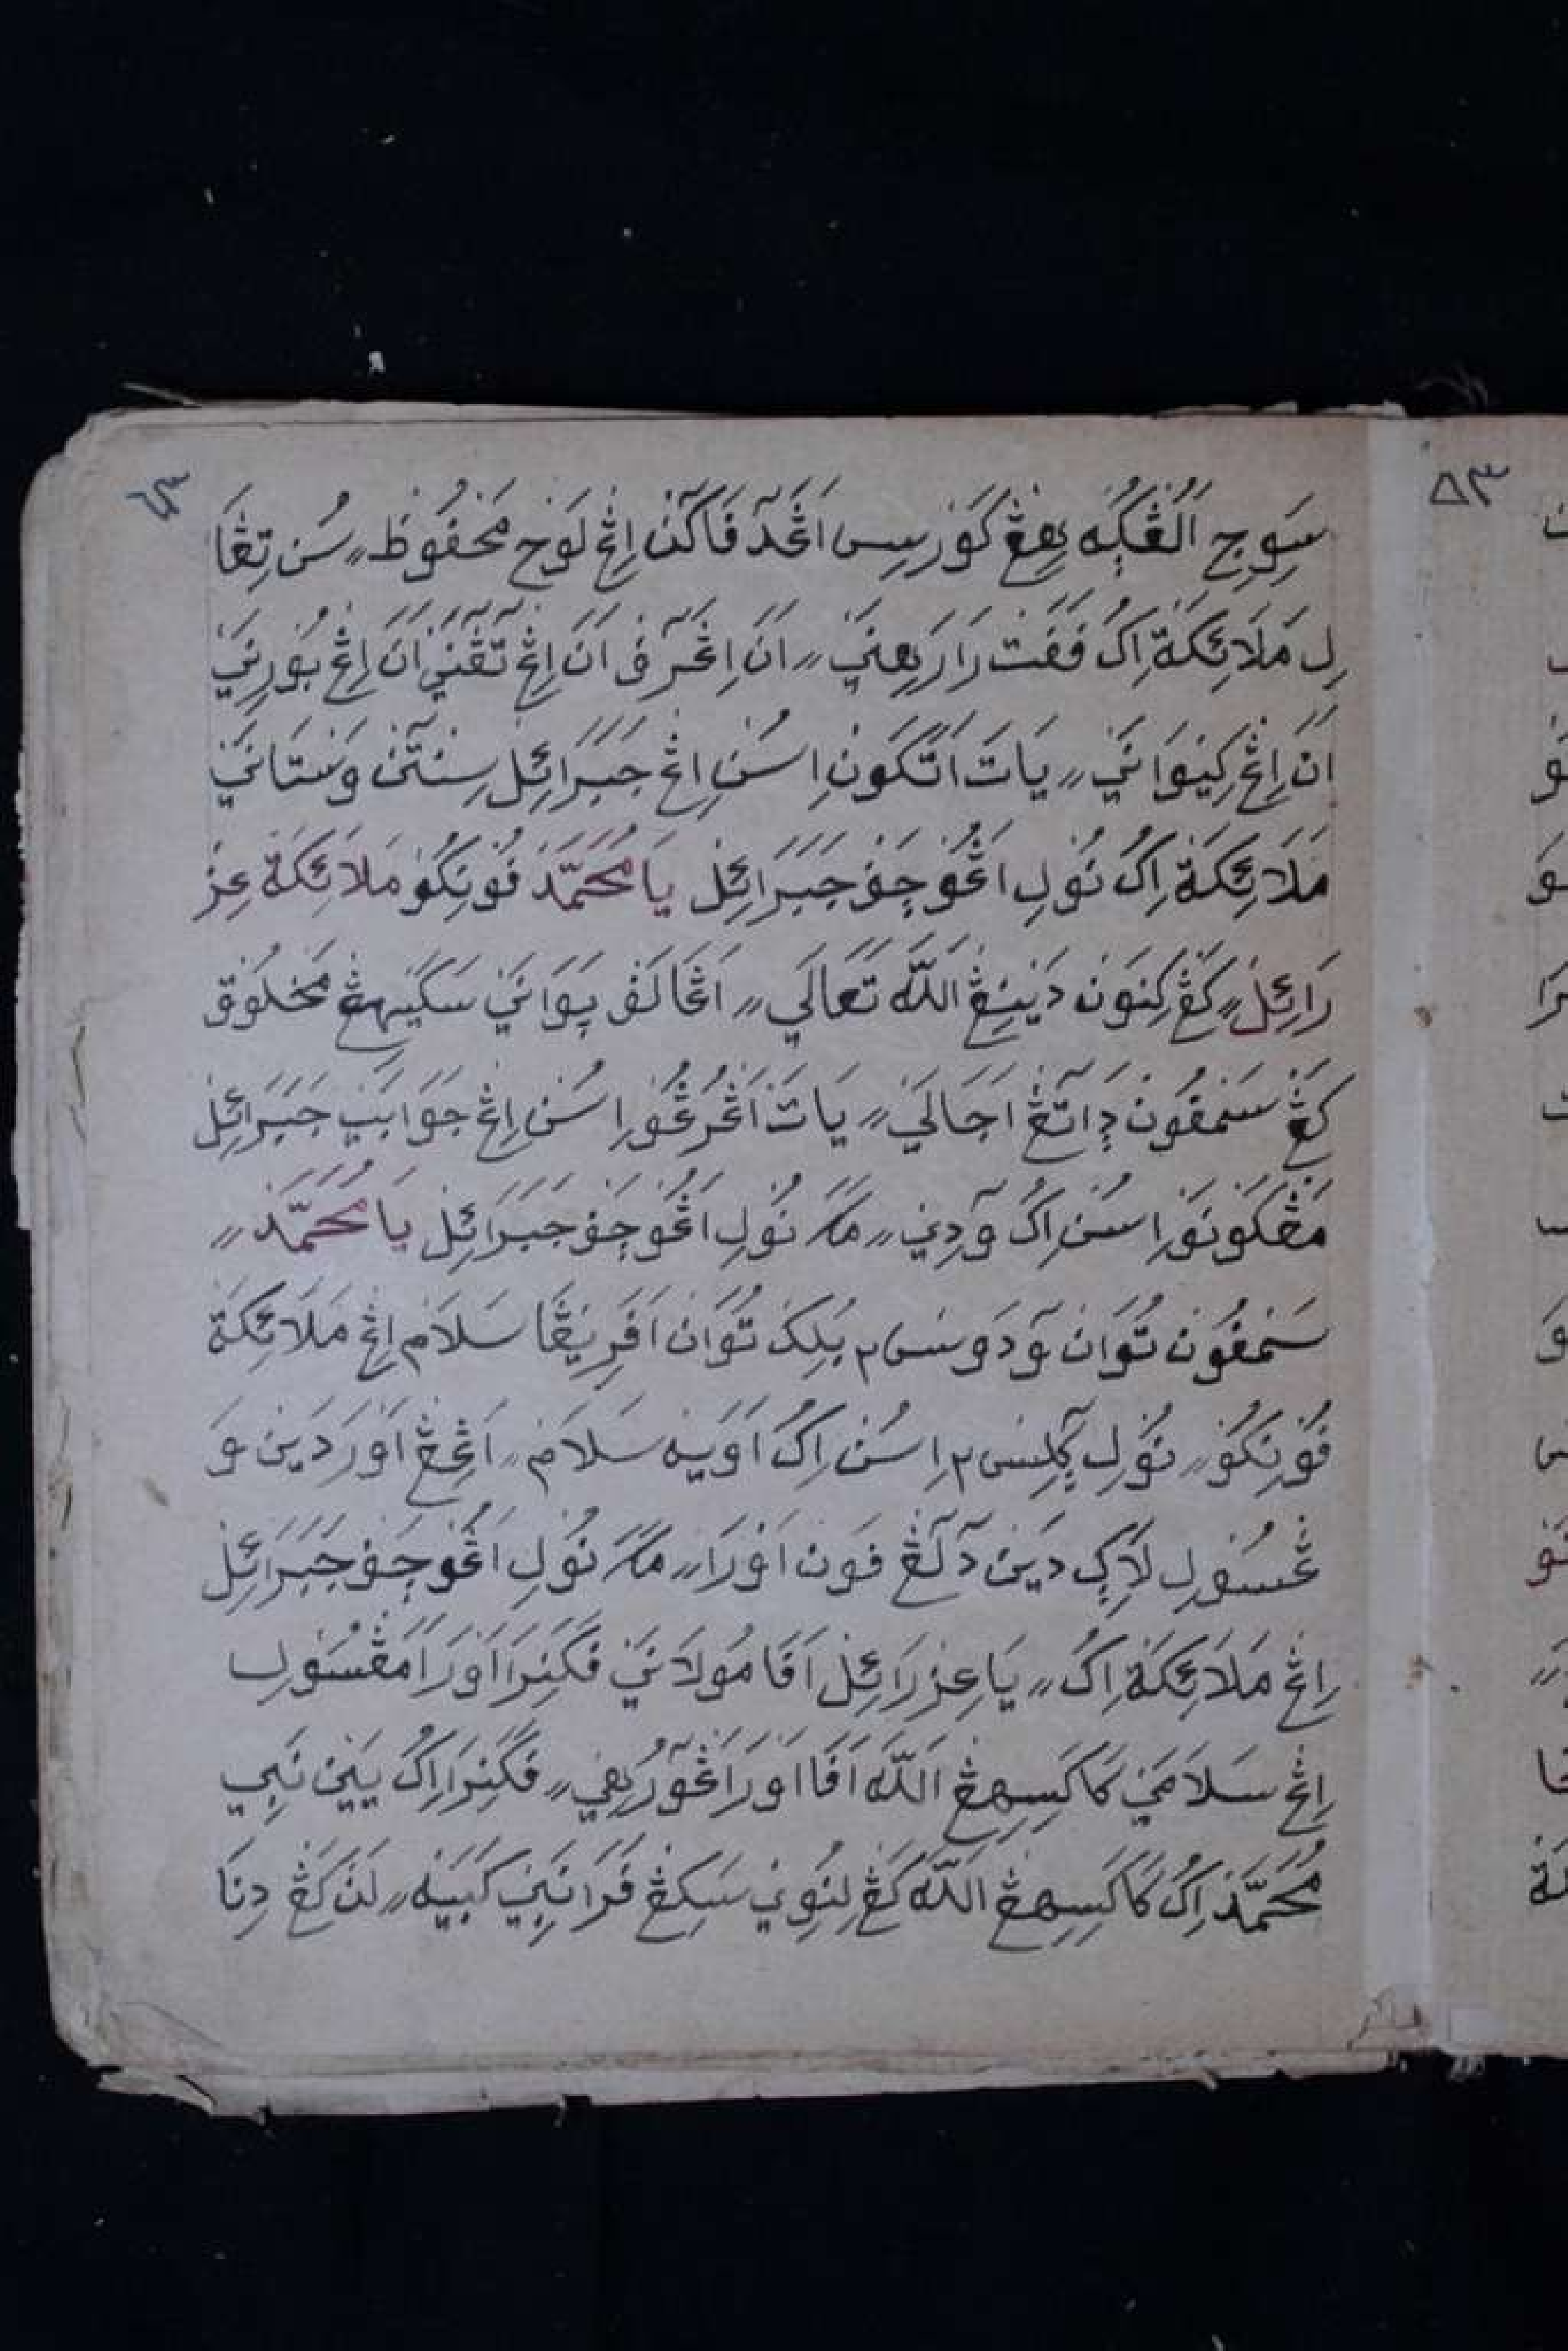 سَوِجِ اَلُڠْڮُهْ ىڠِڠْ كَوْرْسِى اَڠَدَڤَاكَنْ اِڠْ لَوْحِ مَحْفُوْظْ سُنْ تِڠَا
لِ مَلَائِكَةْ اِكُ ڤَڤَتْ رَارَهِنَيْ اَنَ اِڠْ عَرَڤْ اَنَ اِڠْ تَڠْنَيْ اَنَ اِڠْ بُوْرِنَيْ
اَنَ اِڠْ كِيْوَانَيْ يَاتَ اَتَكَوْنْ اِسُنْ اِڠْ جَبَرَائِلْ سِنْتَنْ وَسْتَانَيْ
مَلَائِكَةْ اِكُ نُوْلِ اَڠُوْچَفْ جَبَرَائِلْ يَا مُحَمَّدْ ڤُوْنِكُوْ مَلَائِكَةْ عِزْ
رَائِلْ كَڠْ كِنَوْنْ دَيْنِڠْ اَللّٰهْ تَعَالَي اَڠَالَڤْ ۑَوَانَيْ سَكَيْهِڠْ مَخْلُوْقْ
كَڠْ سَمْڤُوْنْ دٕاتَڠْ اَجَالَيْ يَاتَ اَڠْرُڠُوْ اِسُنْ اِڠْ جَوَابَيْ جَبَرَائِلْ
مَڠْكَوْنَوْ اِسُنْ اِكُ وَدِيْ مَكَ نُوْلِ اَڠُوْچَفْ جَبَرَائِلْ يَا مُحَمَّدْ
سَمْڤُوْنْ تُوَانْ وَدَوْسْ٢ بَلِكْ تُوَانْ اَڤَرِيْڠَا سَلَامْ اِڠْ مَلَائِكَةْ
ڤُوْنِكُوْ نُوْلِ ڮَلِسْ٢ اِسُنْ اِكُ اَوَيْهْ سَلَامْ اَڠِڠْ اَوْرَ دَيْنْ وَ
ڠْسُوْلِ لَاڮِ دَيْنْ دَلَڠْ ڤَوْنْ اَوْرَا مَكَ نُوْلِ اَڠُوْچَفْ جَبَرَائِلْ
اِڠْ مَلَائِكَةْ اِكُ يَا عِزْرَائِلْ اَڤَا مُوْلَانَيْ ڤَكَنِرَا اَوْرَا مَڠْسُوْلِ
اِڠْ سَلَامَيْ كَاكَسِهِڠْ اَللّٰهْ اَڤَا اَوْرَ اَڠَوْرُهِيْ ڤَكَنِرَ اِكُ يَيْنْ نَبِي
مُحَمَّدْ اِكُ كَاكَسِهِڠْ اَللّٰهْ كَڠْ لِنُوْوِيْ سَكِڠْ ڤَرَا نَبِيْ كَبَيْهْ لَنْ كَڠْ دِنَا